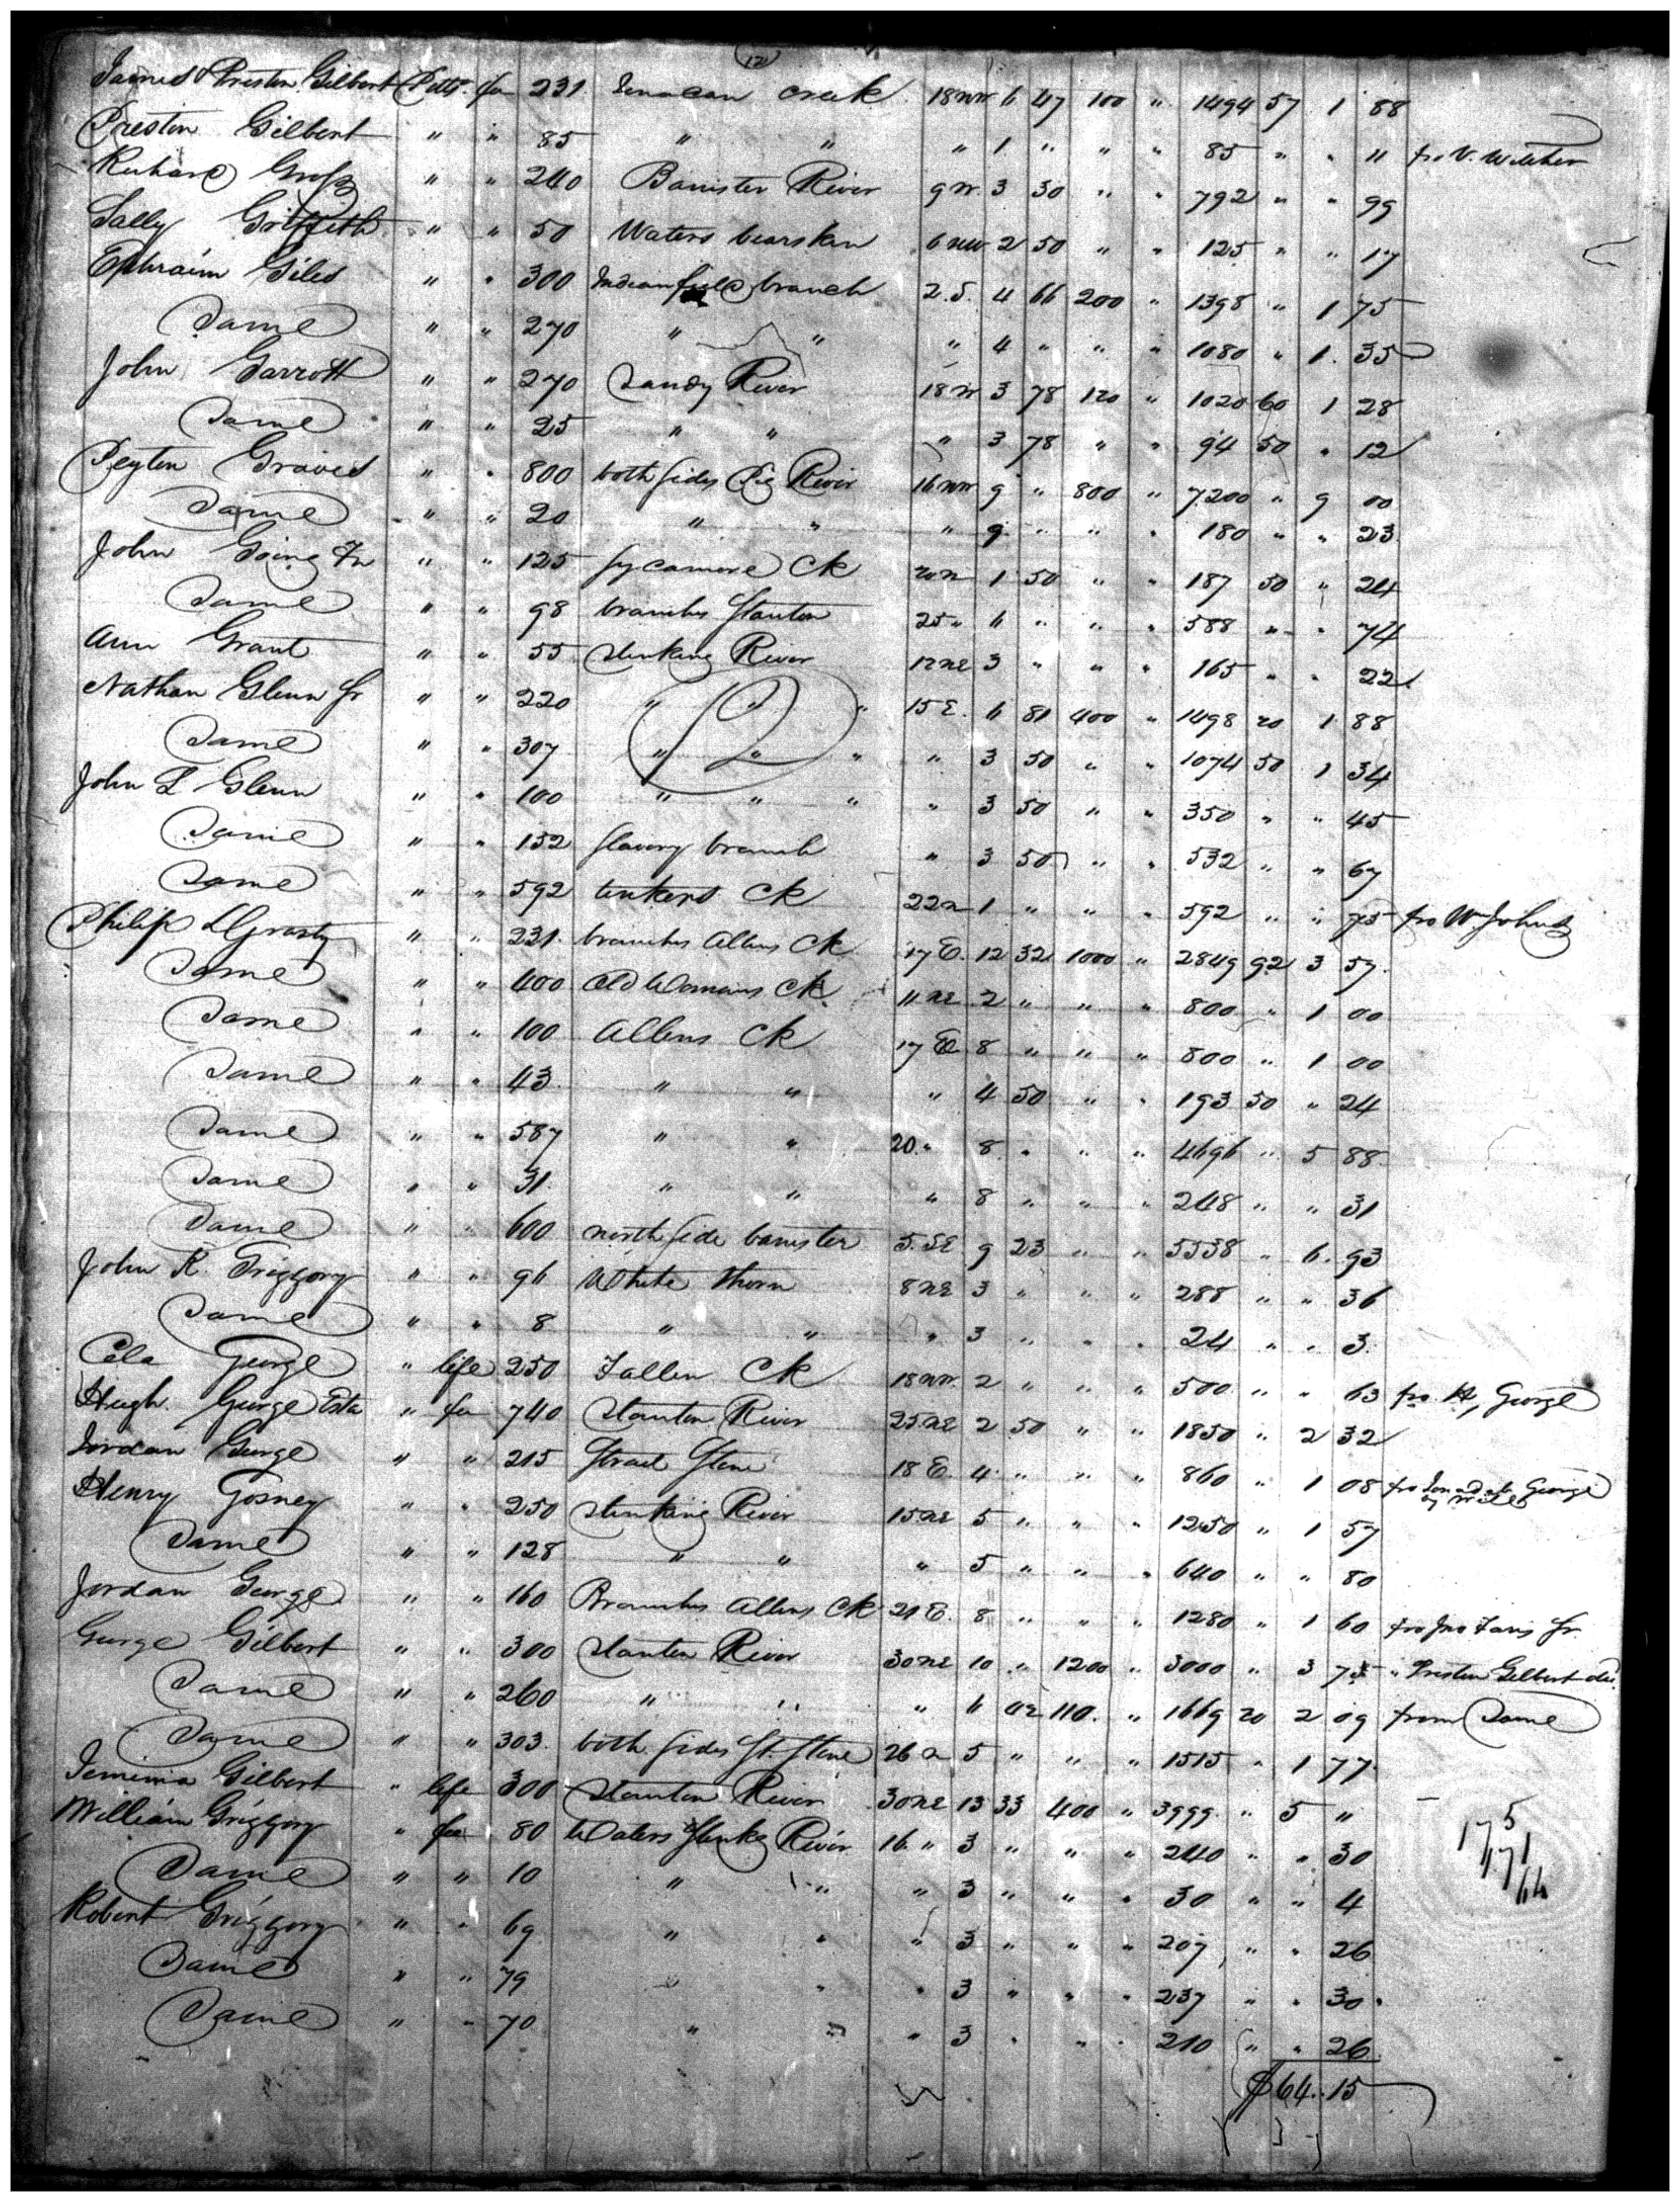 12
James & Preston Gilbert Pitts. fee 231 creek 18 NW 6 47 100 " 1494 57 1 88
Preston Gilbert " " 85 " " " 1 " " " 85 " " 11 fro V. Witcher
Richard Gross " " 240 Banister River 9 W. 3 30 " " 792 " " 99
Sally Griffith " " 50 Waters bearskin 6 NW 2 50 " " 125 " " 17
Ephraim Giles " " 300 Indianfield branch 2. S. 4 66 200 " 1398 " 1 75
Same " " 270 " " " 4 " " " 1080 " 1. 35
John Garrott " " 270 Sandy River 18 W 3 78 120 " 1020 60 1 28
Same " " 25 " " " 3 78 " " 94 50 " 12
Peyton Graves " " 800 both sides Pig River 16 NW 9 " 800 " 7200 " 9 00
Same " " 20 " " " 9 " " " 180 " " 23
John Going " " 125 Sycamore Ck 20 N 1 50 " " 187 50 " 24
Same " " 98 branches Stanton 25 " 6 " " " 588 " " 74
Ann Grant " " 55 Stinking River 12 NE 3 " " " 165 " " 22
Nathan Glenn Jr " " 220 " " " 15 E. 6 81 400 " 1498 20 1 88
Same " " 307 " " " " 3 50 " " 1074 50 1 34
12
John L Glenn " " 100 " " " " 3 50 " " 350 " " 45
Same " " 152 branch " 3 50 " " 532 " " 67
Same " " 592 tinkers Ck 22 N 1 " " " 592 " " 75 fro Wm Johns
Philip L Grasty " " 231. branches Allens Ck 17 E. 12 32 1000 " 2849 92 3 57.
Same " " 400 Old Womans Ck 11 NE 2 " " " 800 " 1 00
Same " " 100 Allens Ck 17 E 8 " " " 800 " 1 00
Same " " 43 " " " 4 50 " " 193 50 " 24
Same " " 587 " " 20 " 8 " " " 4696 " 5 88
Same " " 31 " " " 8 " " " 248 " " 31
Same " " 600 north side banister 5. SE 9 23 " " 5538 " 6. 93
John R. Griggory " " 96 White thorn 8 NE 3 " " " 288 " " 36
Same " " 8 " " " 3 " " " 24 " " 3
Cela George " life 250 Ck 18 NW. 2 " " " 500 " " 63 fro. H, George
Hugh. George Esta " fee 740 Stanton River 25 NE 2 50 " " 1850 " 2 32
Jordan George " " 215 Strait Stone 18 E 4 " " " 860 " 1 08 fro George by Will
Henry Gosney " " 250 Stinking River 15 NE 5 " " " 1250 " 1 57
Same " " 128 " " " 5 " " " 640 " " 80
Jordan George " " 160 Branches Allens Ck 21 E. 8 " " " 1280 " 1 60 fro Jno Faris Jr.
George Gilbert " " 300 Stanton River 30 NE 10 " 1200 " 3000 " 3 75 " Preston Gilbert
Same " " 260 " " " 6 42 110. " 1669 20 2 09 from Same
Same " " 303. both sides St. Stone 26 N 5 " " " 1515 " 1 77
Jemima Gilbert " life 300 Stanton River 30 NE 13 33 400 " 3999 " 5 "
William Griggory " fee 80 Waters Stinkg River 16 " 3 " " " 240 " " 30
Same " " 10 " " " 3 " " " 30 " " 4
Robert Griggory " " 69 " " " 3 " " " 207 " " 26
Same " " 79 " " " 3 " " " 237 " " 30
Same " " 70 " " " 3 " " " 210 " " 26
$64.15